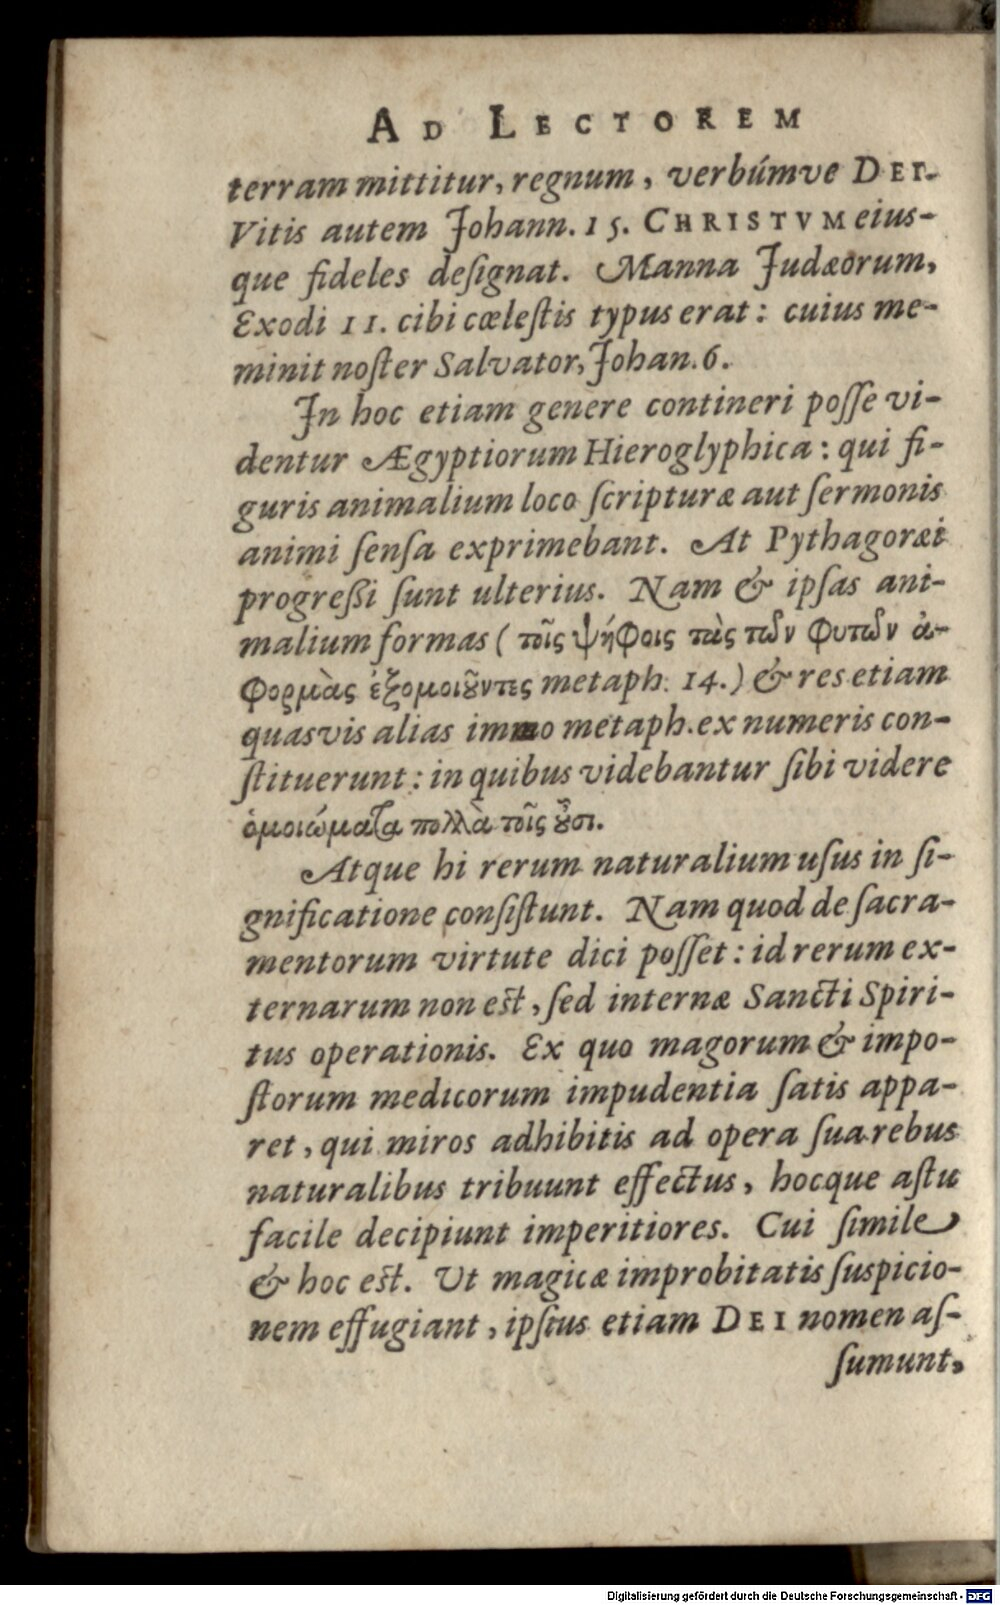 AD LECTOREM
terram mittitur, regnum, verbúmve DEI.
Vitis autem Johann. 15. CHRISTVM eius-
que fideles deſignat. Manna Judæorum,
Exodi 11. cibi cœleſtis typus erat: cuius me-
minit noſter Salvator, Johan. 6.
In hoc etiam genere contineri poſſe vi-
dentur Ægyptiorum Hieroglyphica: qui fi-
guris animalium loco ſcripturæ aut ſermonis
animi ſenſa exprimebant. At Pythagoræi
progreßi ſunt ulterius. Nam & ipſas ani-
malium formas ( τοῖς ψήφοις τὰς τῶν φυτῶν ἀ-
φορμὰς ἐξομοιοῦντες metaph. 14.) & res etiam
quasvis alias immo metaph. ex numeris con-
ſtituerunt: in quibus videbantur ſibi videre
ὁμοιώματα πολλὰ τοῖς οὖσι.
Atque hi rerum naturalium uſus in ſi-
gnificatione conſiſtunt. Nam quod de ſacra-
mentorum virtute dici poſſet: id rerum ex-
ternarum non eſt, ſed internæ Sancti Spiri-
tus operationis. Ex quo magorum & impo-
ſtorum medicorum impudentia ſatis appa-
ret, qui miros adhibitis ad opera ſua rebus
naturalibus tribuunt effectus, hocque aſtu
facile decipiunt imperitiores. Cui ſimile
& hoc eſt. Ut magicæ improbitatis ſuspicio-
nem effugiant, ipſius etiam DEI nomen aſ-
ſumunt,
Digitalisierung gefördert durch die Deutsche Forschungsgemeinschaft - DFG